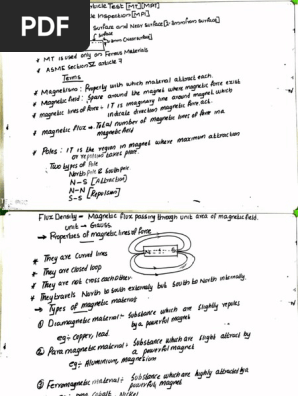 PDF
article Test [MT][MPI]
Inspection [MPI]
Surface and Near Surface
Surface
* MT is used only on Ferrous Materials
* ASME Section V article 7
Terms
* Magnetism: Property with which material attract each.
* Magnetic field: Space around the magnet where magnetic force exist
* magnetic lines of force = IT is imaginary line around magnet which
indicate direction magnetic force act.
* magnetic flux = Total number of magnetic lines of force in a
magnetic field
* Poles: IT is the region in magnet where maximum attraction
or repulsion takes place.
Two types of Pole
North pole & South pole
N-S [Attraction]
N-N
S-S [Repulsion]
Flux Density = Magnetic flux passing through unit area of magnetic field.
unit → Gauss.
→ Properties of magnetic lines of force
N S
* They are curved lines
* They are closed loop
* They are not cross each other
* They travels North to South externaly but South to North internally.
→ Types of magnetic material
① Diamagnetic material: Substance which are slightly repeles
by a powerful magnet
eg: copper, lead.
② Para magnetic material: Substance which are slight attract by
a powerful magnet
eg: Aluminium, magnesium
③ Ferromagnetic material: Substance which are highly attracted by a
powerful magnet
cobalt